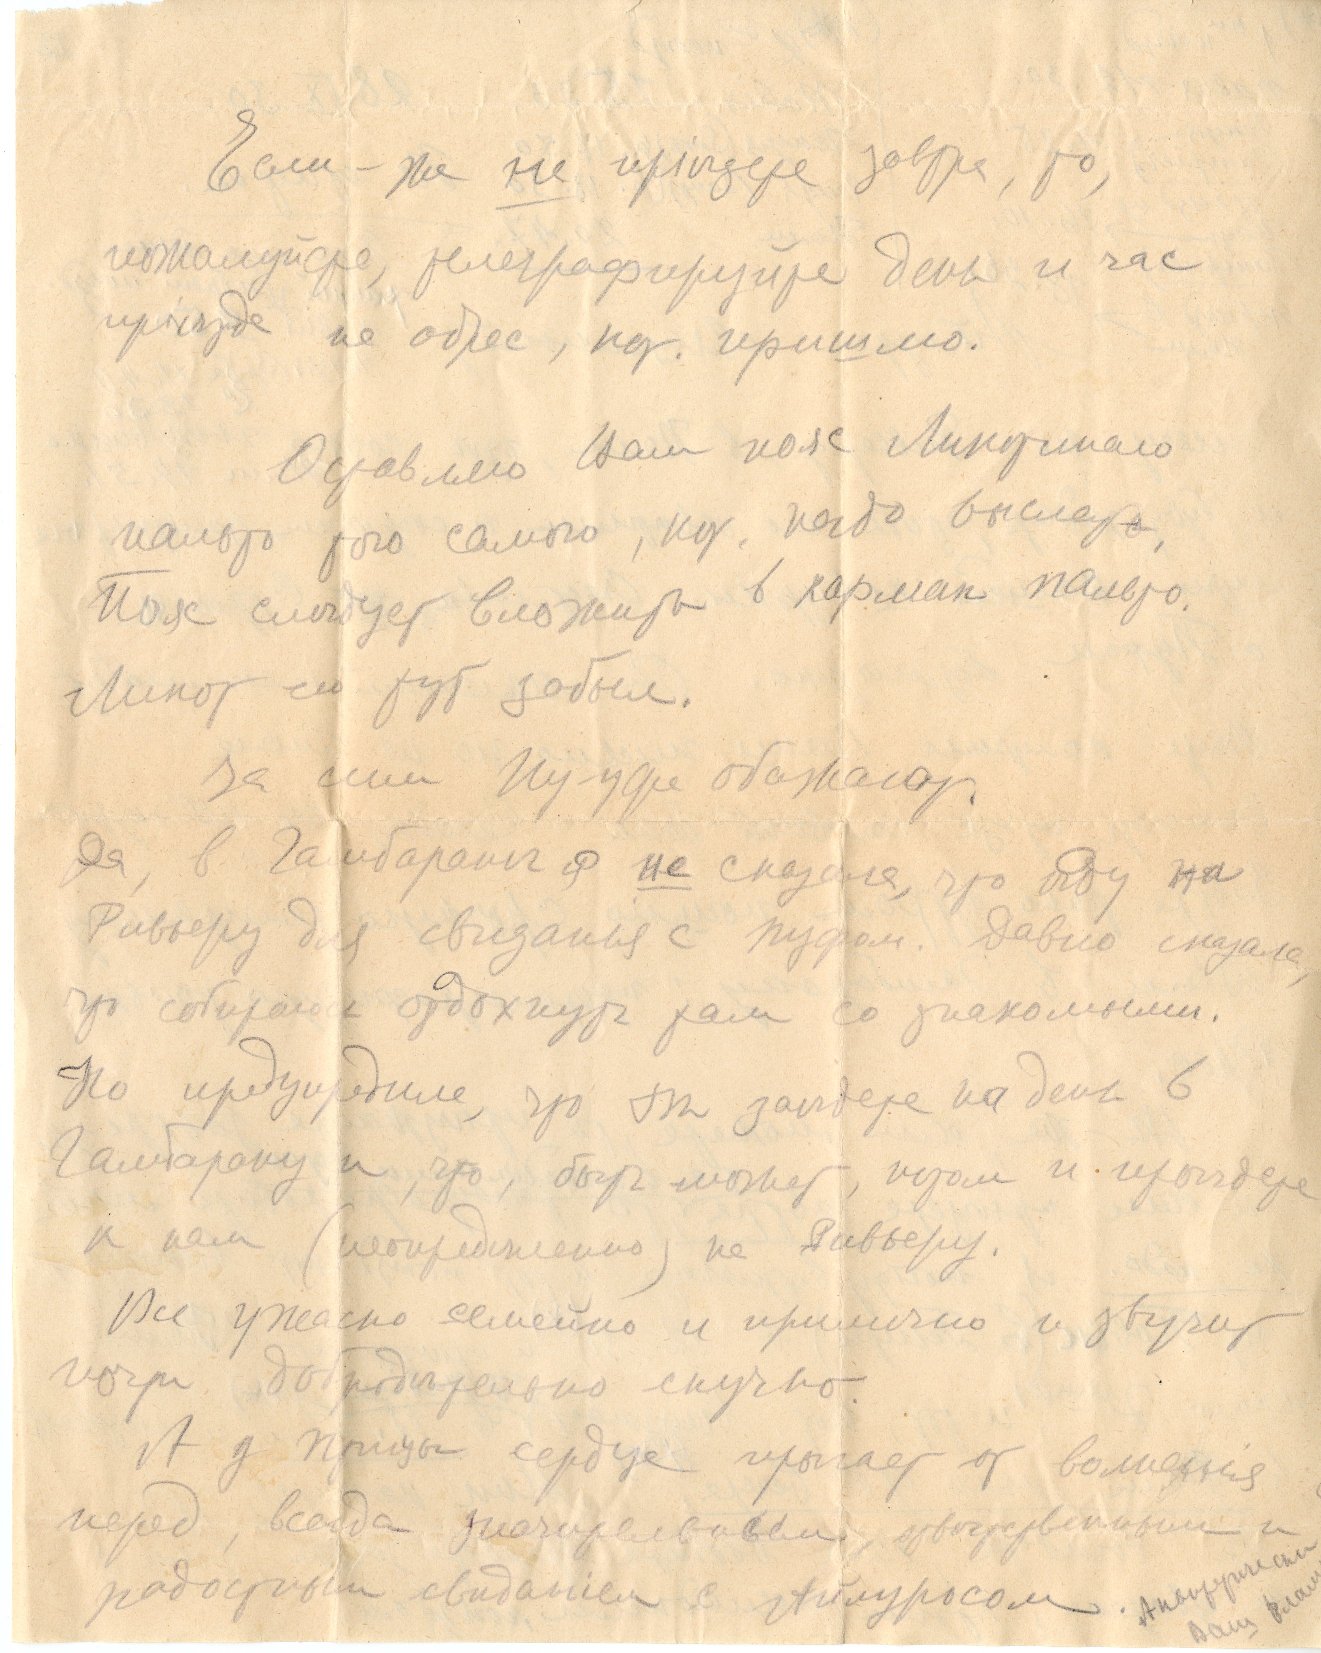 Если-же не пріѣдете завтра, то,
пожалуйста, телеграфируйте день и час
пріѣзда на адрес, кот. пришлю.
Оставляю Вам пояс Ликотинаго
пальто того самого, кот. надо выслать.
Пояс слѣдует вложить в карман пальто.
Ликот его тут забыл.
За сим обожают.
Да, в Гамбараиѣ я не сказала, что ѣду на
Ривьеру для свиданья с Пуфом. Давно сказала,
что собираюсь отдохнуть там со знакомыми.
Но предупредила, что Вы заѣдете на день в
Гамбараиу и, что, быть может, потом и пріѣдете
к нам (неопредѣленно) на Ривьеру.
Все ужасно семейно и прилично и звучит
почти добродѣтельно скучно.
А у Птицы сердце прыгает от волненья
перед, всегда значительным, отвѣтственным и
радостным свиданіем с Айлуросом.
Ваш